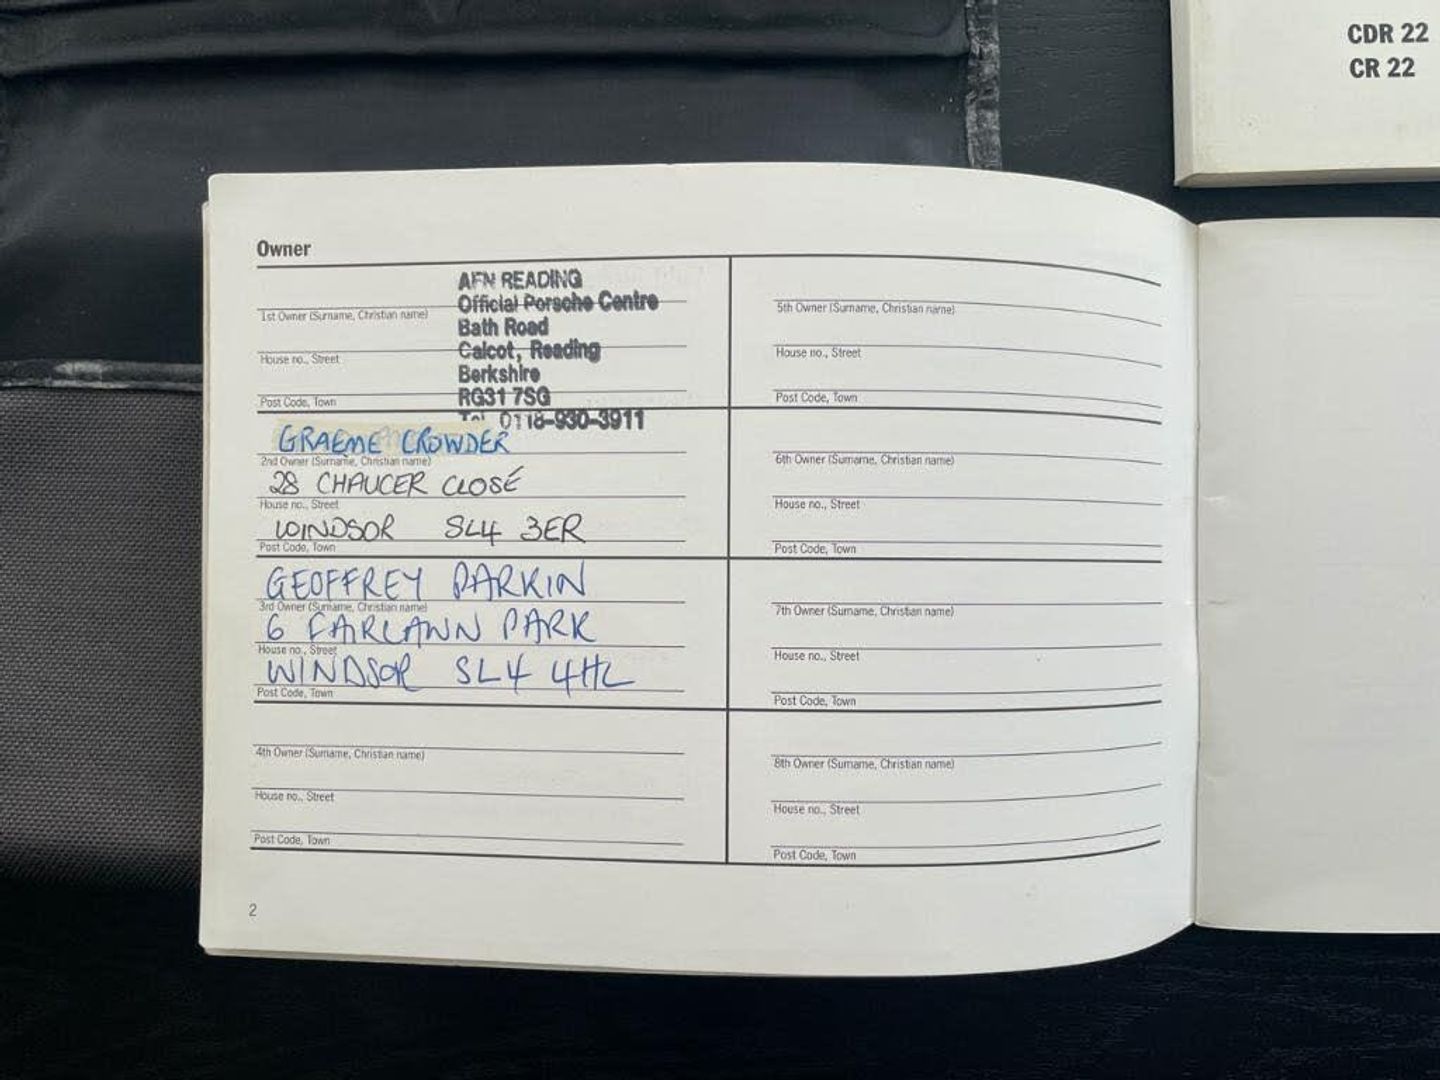 CDR 22
CR 22
Owner
AFN READING
Official Porsche Centre
1st Owner (Surname, Christian name)
Bath Road
House no., Street
Calcot, Reading
Berkshire
Post Code, Town
RG31 7SG
Tel 0118-930-3911
GRAEME CROWDER
2nd Owner (Surname, Christian name)
28 CHAUCER CLOSE
House no., Street
WINDSOR SL4 3ER
Post Code, Town
GEOFFREY PARKIN
3rd Owner (Surname, Christian name)
6 FAIRLAWN PARK
House no., Street
WINDSOR SL4 4HL
Post Code, Town
4th Owner (Surname, Christian name)
House no., Street
Post Code, Town
5th Owner (Surname, Christian name)
House no., Street
Post Code, Town
6th Owner (Surname, Christian name)
House no., Street
Post Code, Town
7th Owner (Surname, Christian name)
House no., Street
Post Code, Town
8th Owner (Surname, Christian name)
House no., Street
Post Code, Town
2